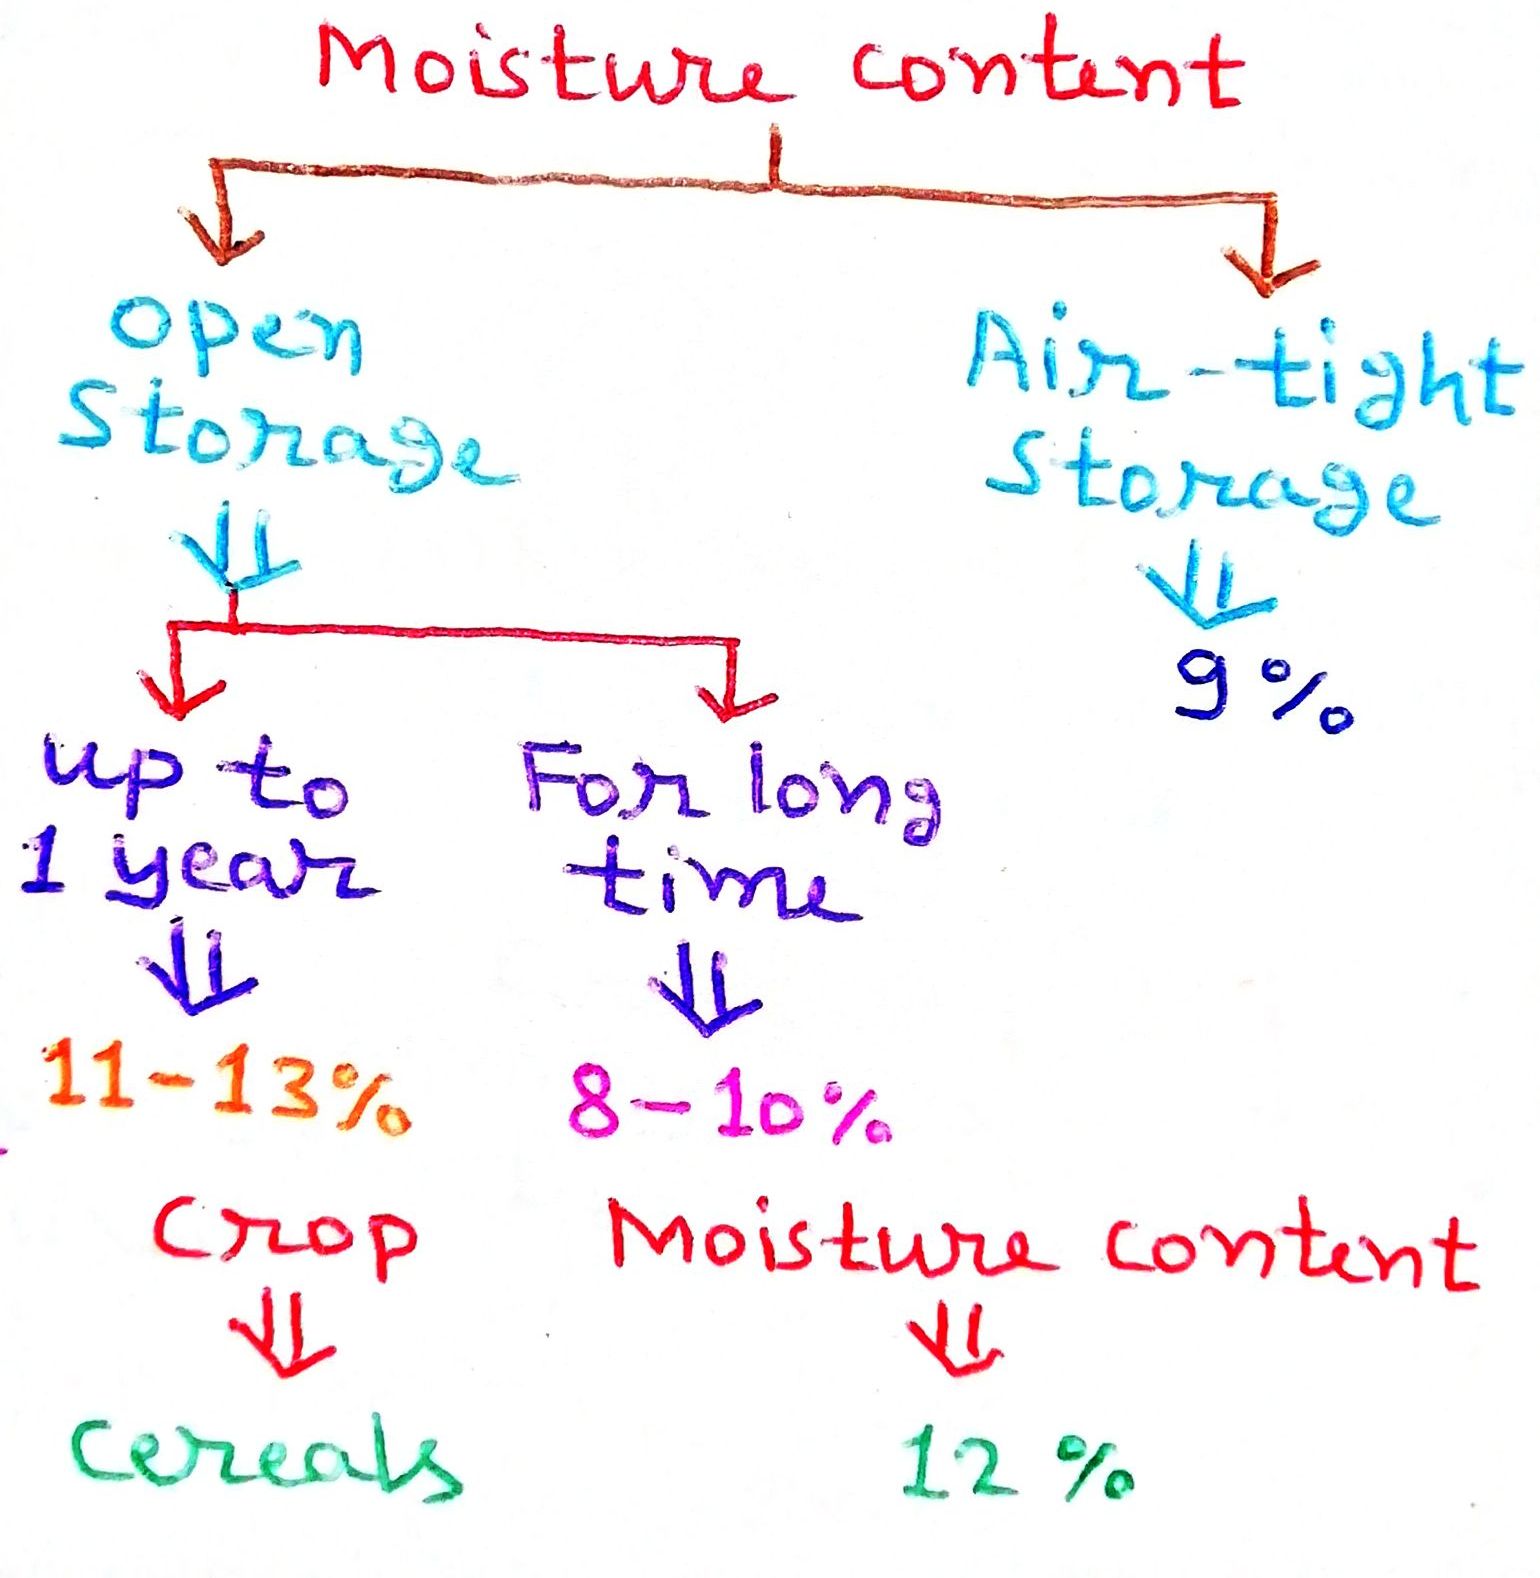 Moisture content
Open
Storage
Air-tight
Storage
9%
up to
1 year
For long
time
11-13%
8-10%
Crop
Moisture content
Cereals
12%